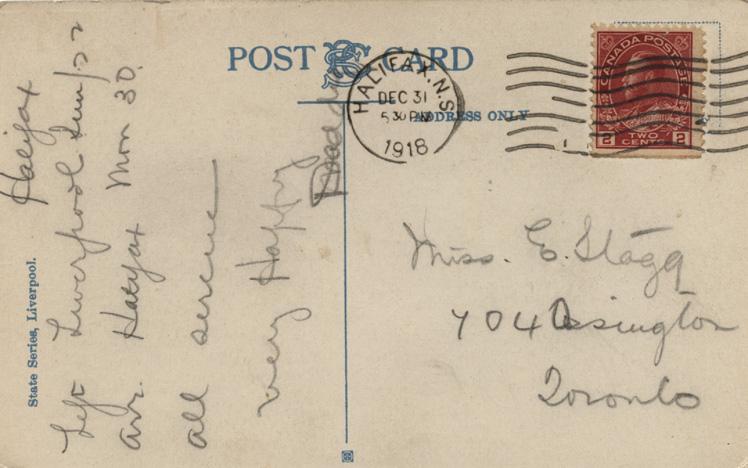 POST CARD
ADDRESS ONLY
HALIFAX. N.S
DEC 31
5 30 PM
1918
CANADA POSTAGE
2 TWO CENTS 2
Halifax
Left Liverpool Sun 22
arr. Halifax Mon 30.
all serene
very Happy
Dad
Miss. E. Stagg
704 Ossington
Toronto
State Series, Liverpool.